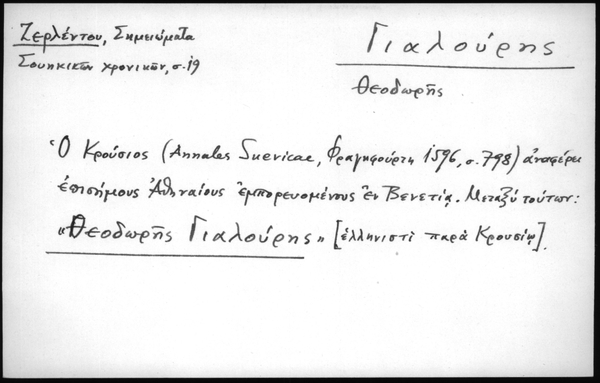 Ζερλέντου, Σημειώματα
Σουηκικῶν χρονικῶν, σ. 19
Γιαλούρης
Θεοδωρῆς
Ὁ Κρούσιος (Annales Suevicae, Φραγκφούρτη 1596, σ. 798) ἀναφέρει
ἐπισήμους Ἀθηναίους ἐμπορευομένους ἐν Βενετίᾳ. Μεταξὺ τούτων:
«Θεοδωρῆς Γιαλούρης» [ἑλληνιστὶ παρὰ Κρουσίῳ].